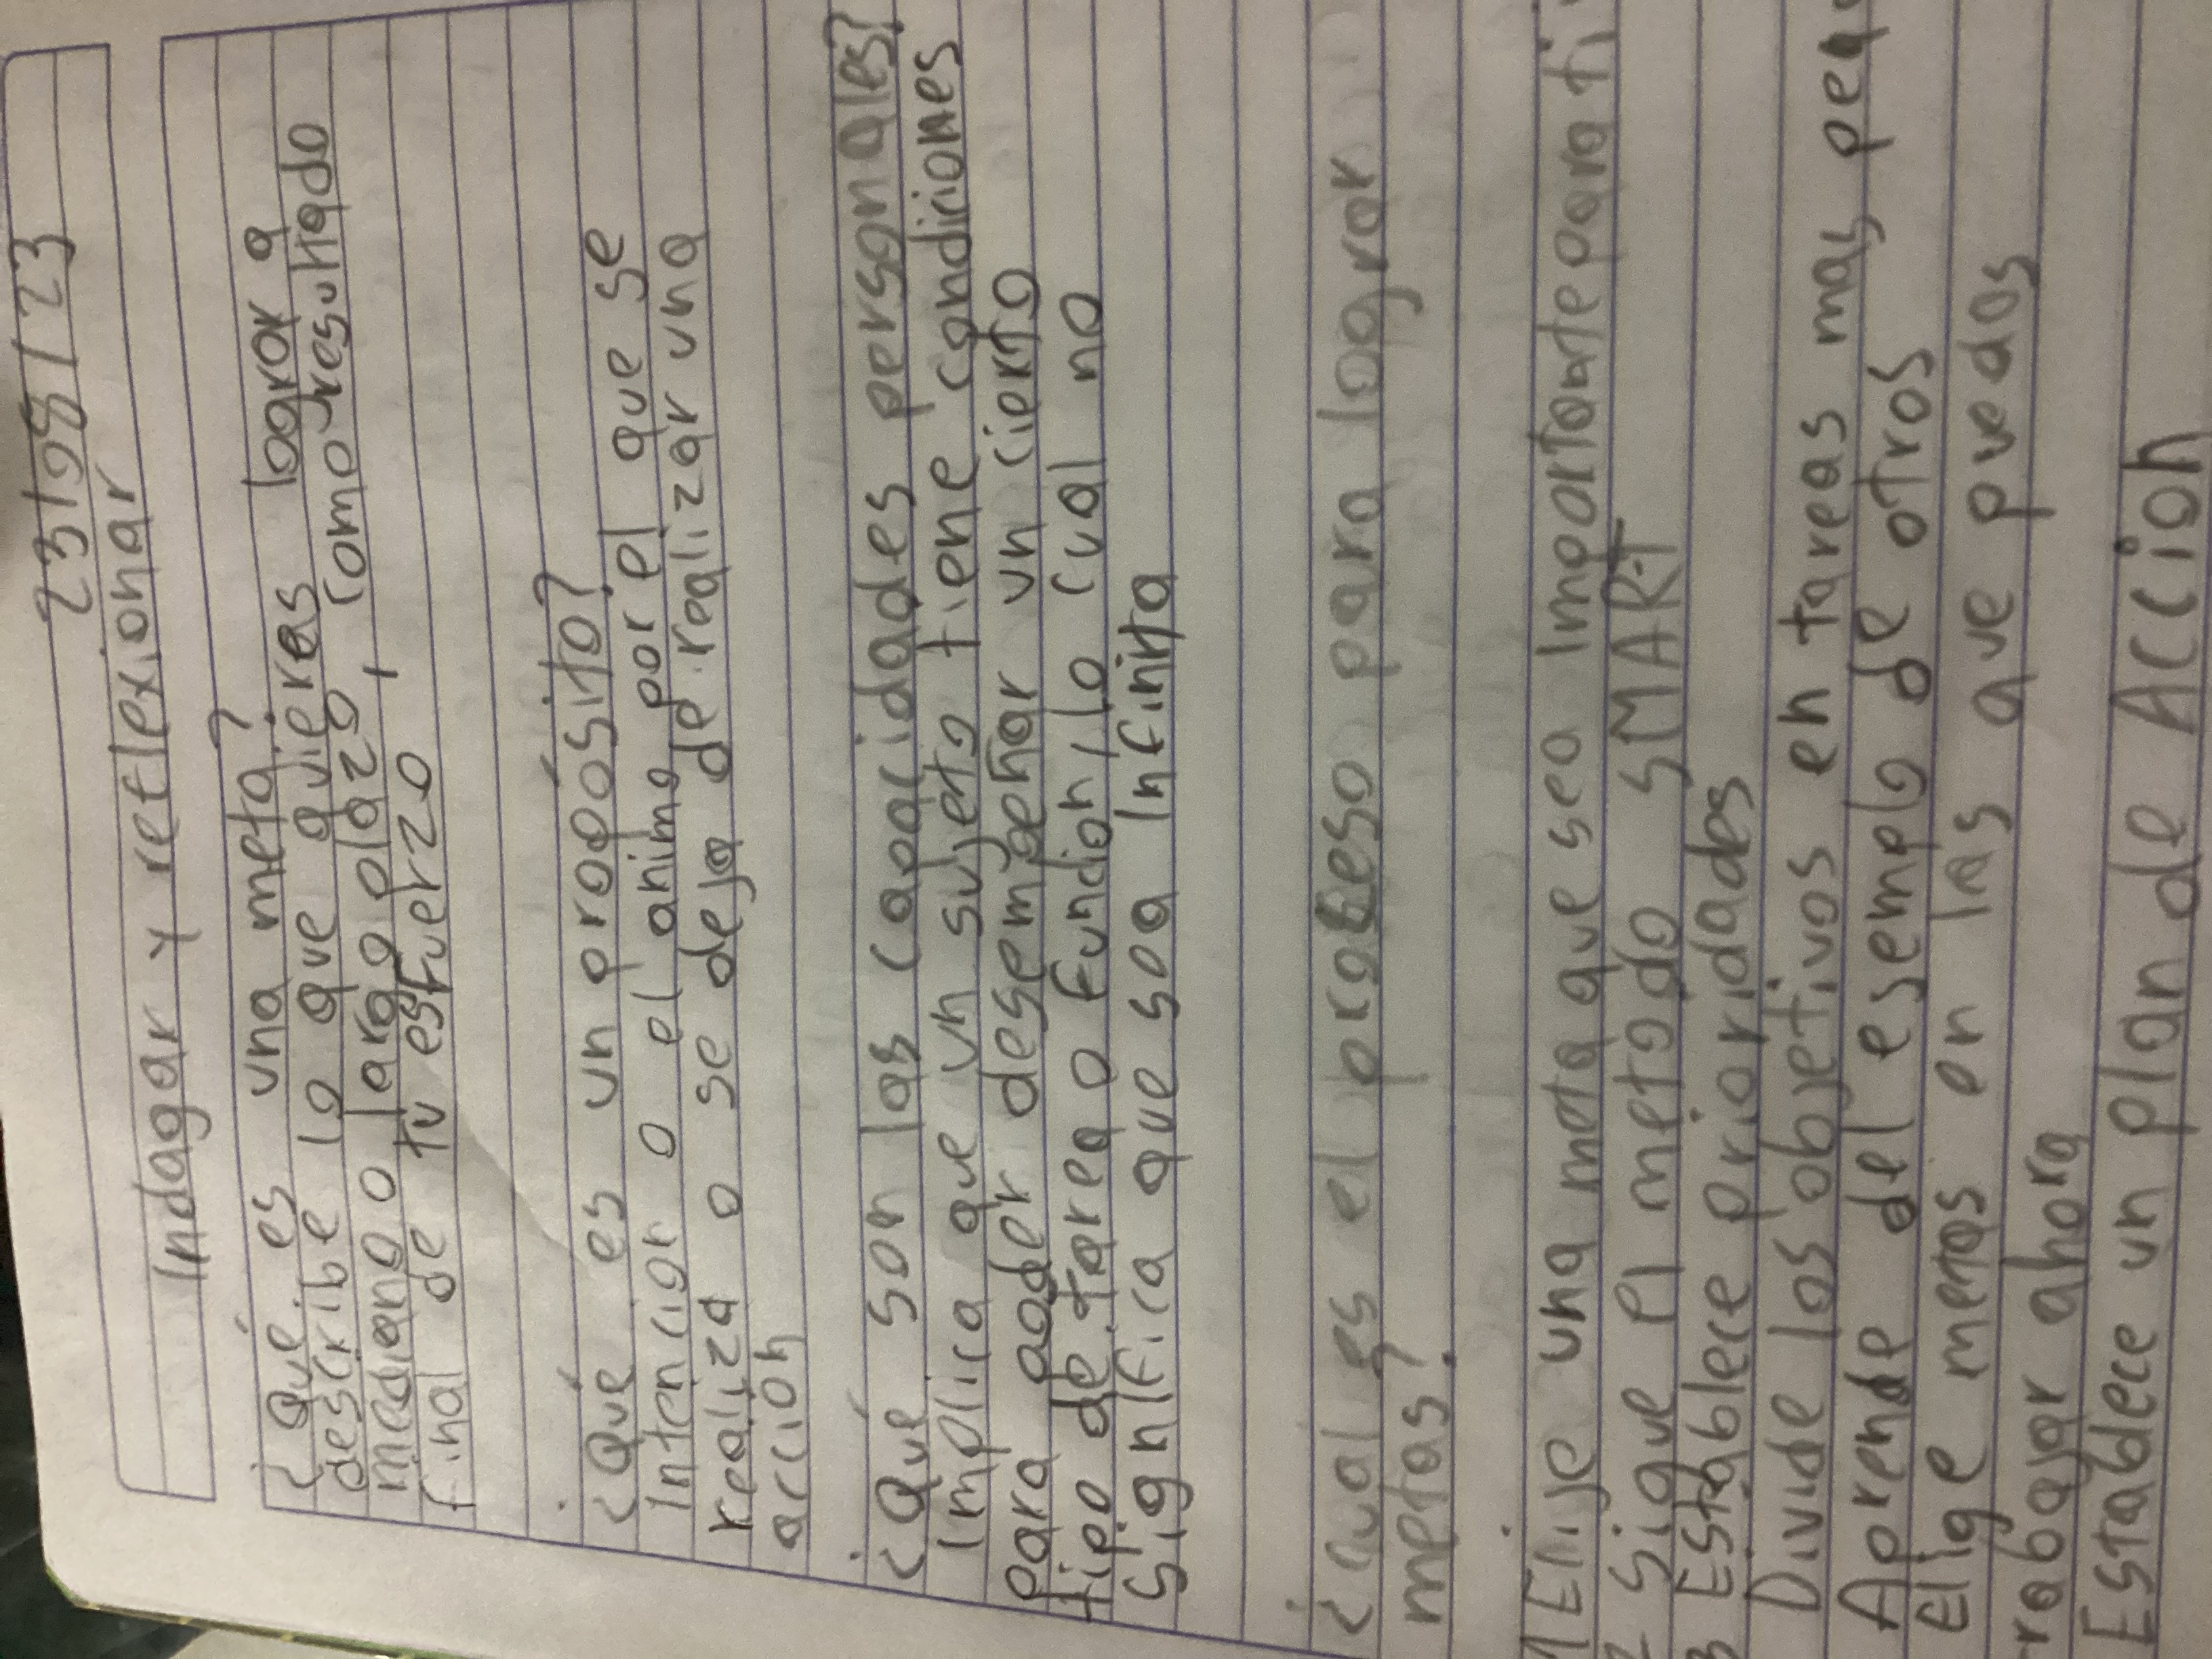 23/08/23
Indagar y reflexionar
¿Qué es una meta?
describe lo que quieres lograr a
mediano o largo plazo, como resultado
final de tu esfuerzo
¿Qué es un propósito?
Intencion o el animo por el que se
realiza o se deja de realizar una
acción
¿Qué son las capacidades personales?
Implica que un sujeto tiene condiciones
para poder desempeñar un cierto
tipo de tarea o fundion, lo cual no
significa que sea Infinita
¿Cual es el proceso para lograr
metas?
1 Elije una meta que sea importante para ti
2 Sigue el metodo SMART
3 Establece prioridades
Divide los objetivos en tareas mas
Aprende del esemplo de otros
Elige metas en las que puedas
rabajar ahora
Establece un plan de Acción